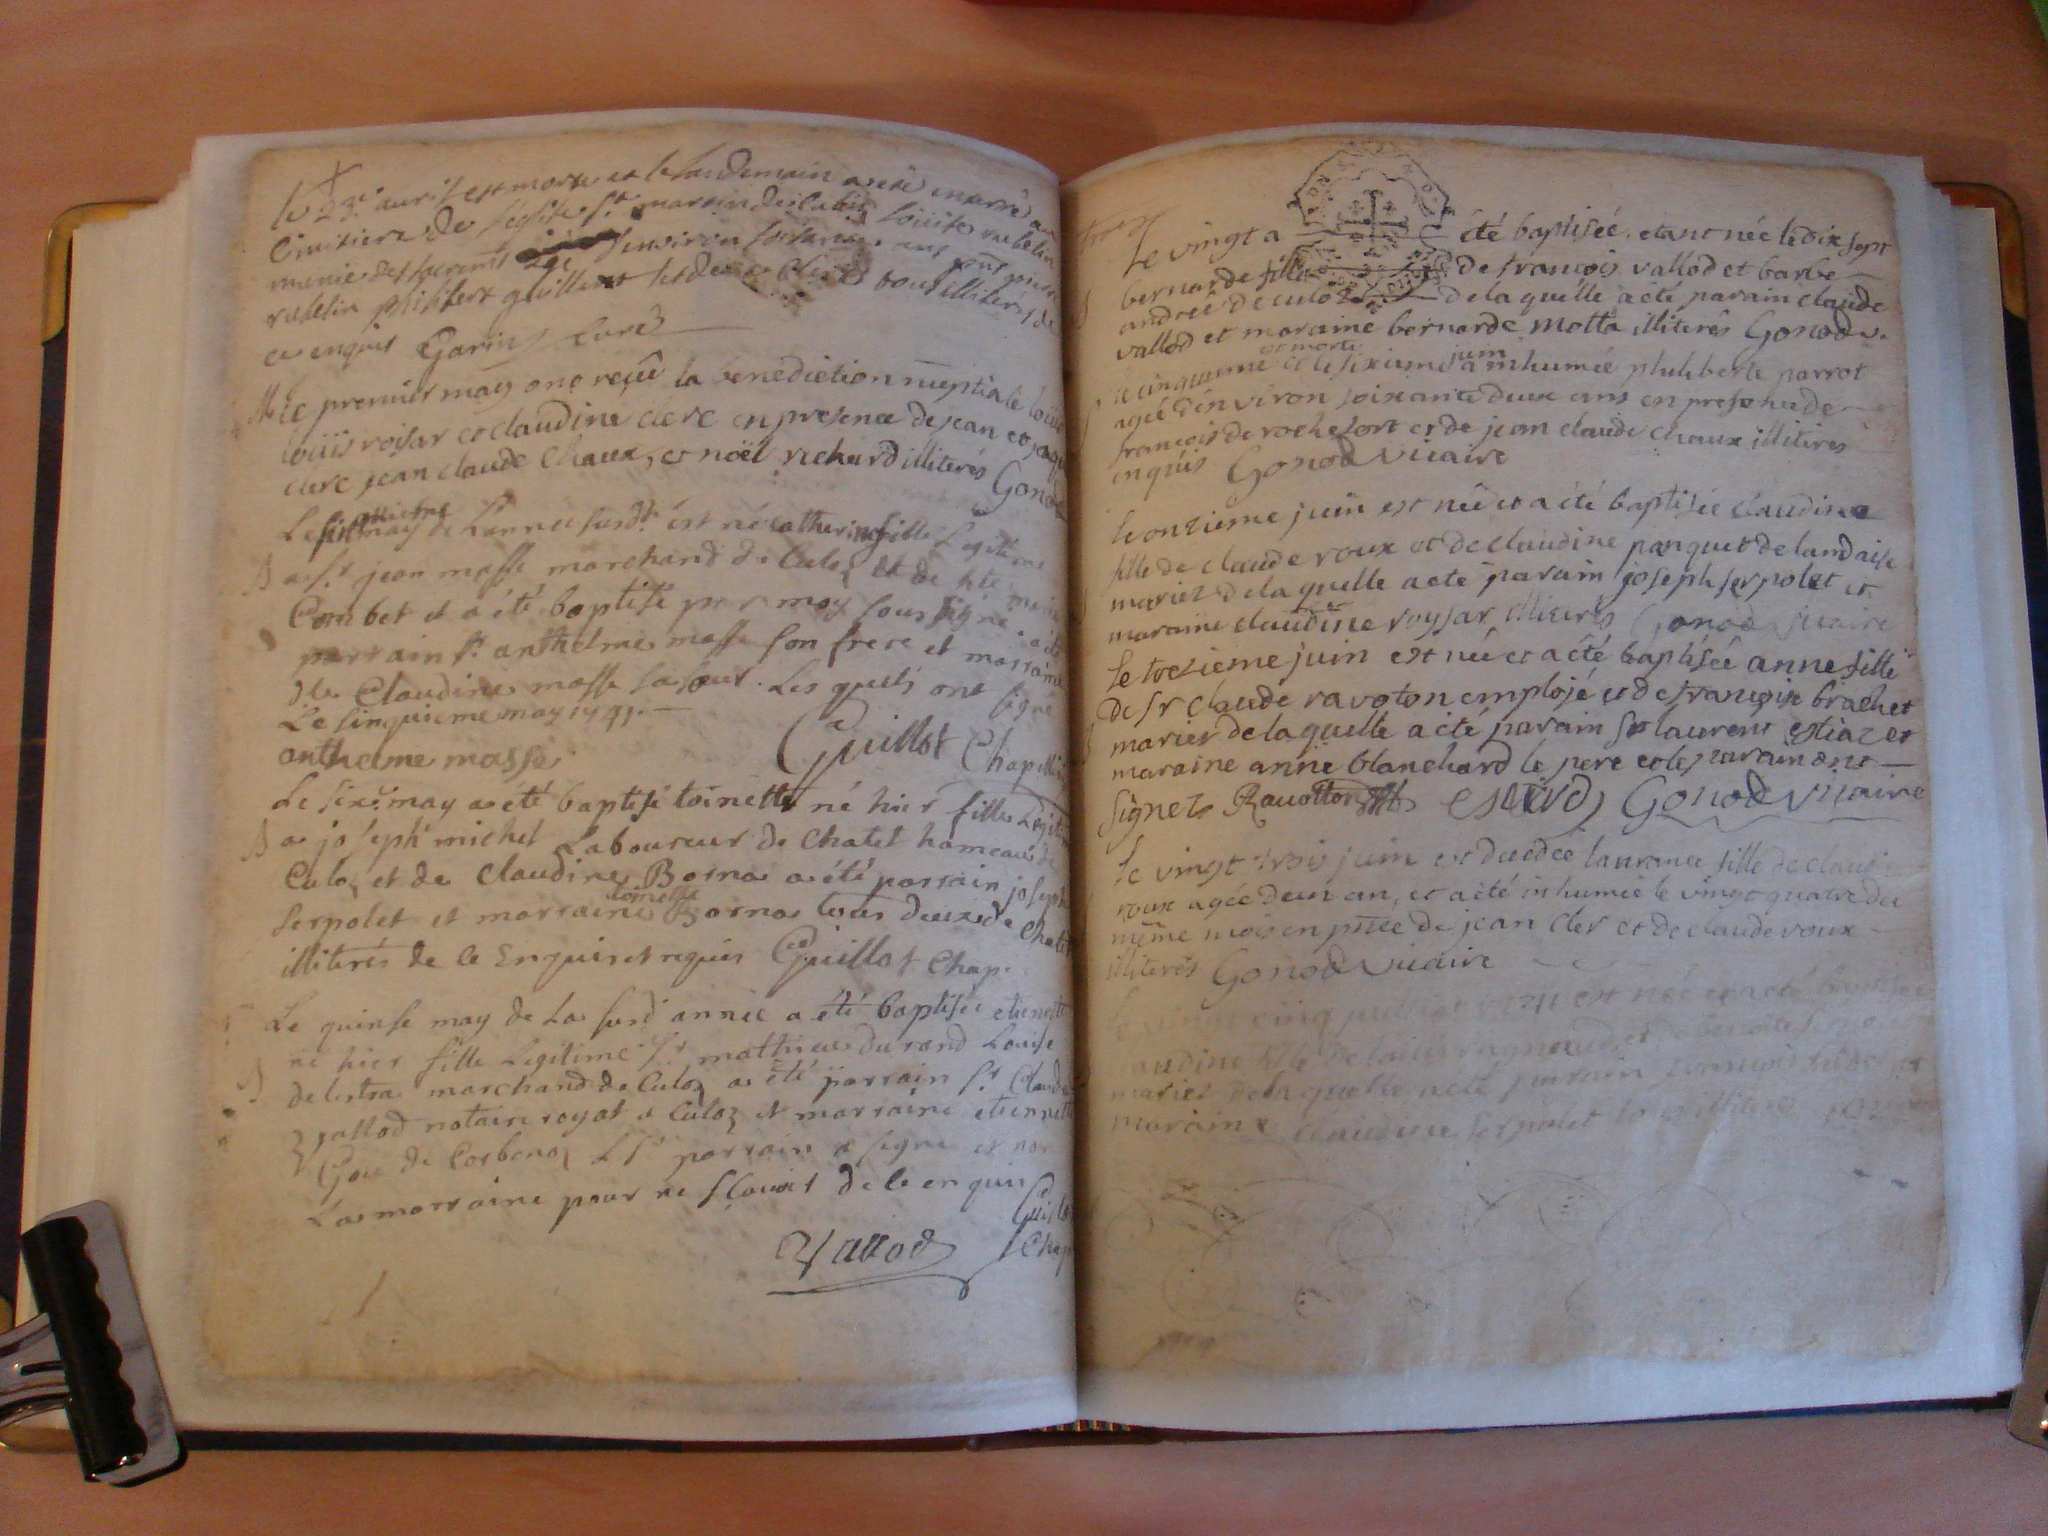 le 23e avril est morte et le landemain a été enterré au
cimitiere de l'église St martin de Culoz Loüise rubelin
munie des sacremts agé d'environ soisante ans pnts pierre
rubelin philibert guillent et de Clerc tous illiterés de
ce enquis Garin Curé
M le premier may ont reçû la benediction nuptiale
loüis roisar et claudine clerc en presence de jean et
clerc jean claude Chaux, et noël richard illiterés Gonod
Le may de L'année susdt est né catherine fille Legitime
B a Sr jean masse marchand de Culoz et de
Combet et a été baptisé par moy soussigné a été
parrain Sr anthelme masse son frere et marraine
dlle Claudine masse sa soeur. Les quels ont signé
Le sinquieme may 1741.
anthelme masse Guillot Chapellain
Le sixe may a été baptisé toinette né hier fille Legitime
B a joseph michel Laboureur de Chatel hameau de
Culoz et de Claudine Borna a été parrain joseph
toinette
Serpolet et marraine Borna tous deux de Chatel
illiterés de ce Enquis et requis Guillot Chap.
Le quinse may de La susd année a été baptisée etiennette
né hier fille Legitime Sr mathieu durand Louise
B delestra marchand de Culoz a été parrain Sr Claude
Vallod notaire royal a Culoz et marraine etiennette
Goy de Corbonoz Le Sr parrain a signé et non
La marraine pour ne sçavoir de ce enquis
Guillot
Vallod Chap
le vingt a été baptisée, etant née le dix sept
bernarde fille de francois vallod et barbe
andreé de culoz de laquelle a été parain claude
vallod et maraine bernarde Motta illiterés Gonod v.
est morte juin
le cinquieme et le sixieme a inhumée philiberte parrot
agée d'environ soixante deux ans en presence de
francois de rochefort et de jean claude chaux illiterés
enquis Gonod Vicaire
le onzieme juin est née et a été baptisée claudine
fille de claude roux et de claudine panquet de landaise
mariez de la quelle a été parain joseph serpolet et
maraine claudine roysar illiterés Gonod vicaire
le trezieme juin est née et a été baptisée anne fille
de sr claude ravoton employé et de françoise brachet
mariez de la quelle a été parain sr laurent estiaz et
maraine anne blanchard le pere et le parain ont
signez Ravotton Gonod Vicaire
le vingt trois juin est decedée laurence fille de claude
roux agée d'un an, et a été inhumée le vingt quatre du
même mois en pnce de jean cler et de claude roux
illiterés Gonod Vicaire
le vingt cinq juillet 1741 est née et a été baptisée
claudine fille de et de benoite
mariez de la quelle a été parain et
maraine claudine serpolet tous illiterés